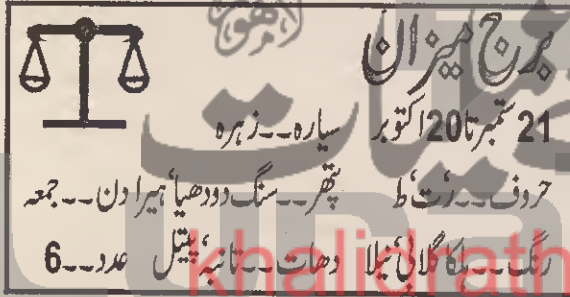 لاہور
برج میزان
21 ستمبر تا 20 اکتوبر سیارہ۔۔زہرہ
حروف۔۔ر'ت'ط پتھر۔۔سنگ دودھیا'ہیرا دن۔۔جمعہ
رنگ۔۔ہلکا گلابی'نیلا دھات۔۔تانبہ'پیتل عدد۔۔6
khalidrath